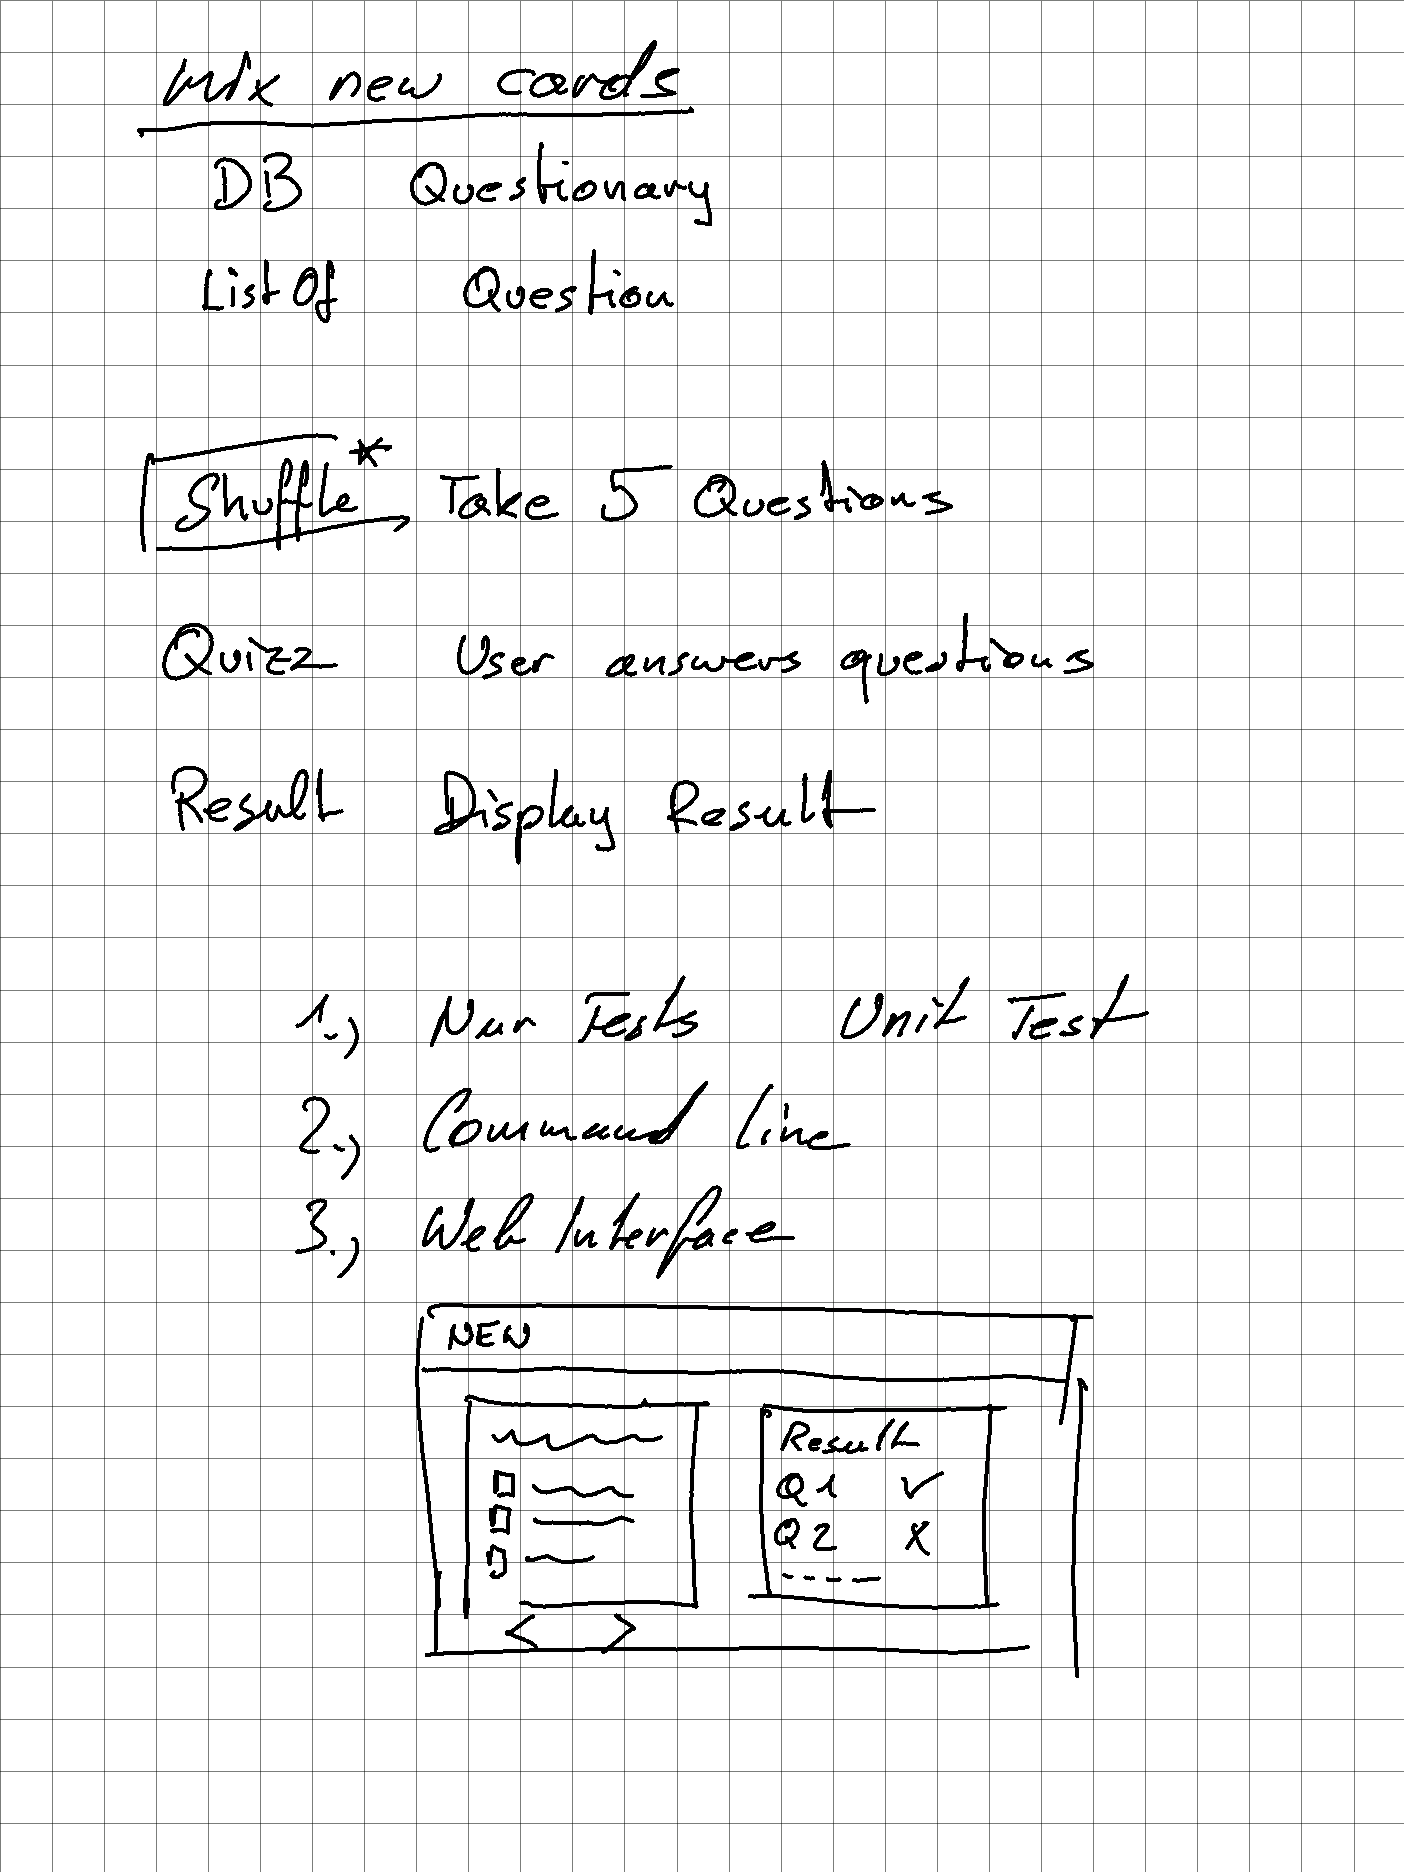 mix new cards
DB Questionary
List Of Question
Shuffle* Take 5 Questions
Quizz User answers questions
Result Display Result
1.) Nur Tests Unit Test
2.) Command Line
3.) Web Interface
NEW
Result
Q1 ✓
Q2 x